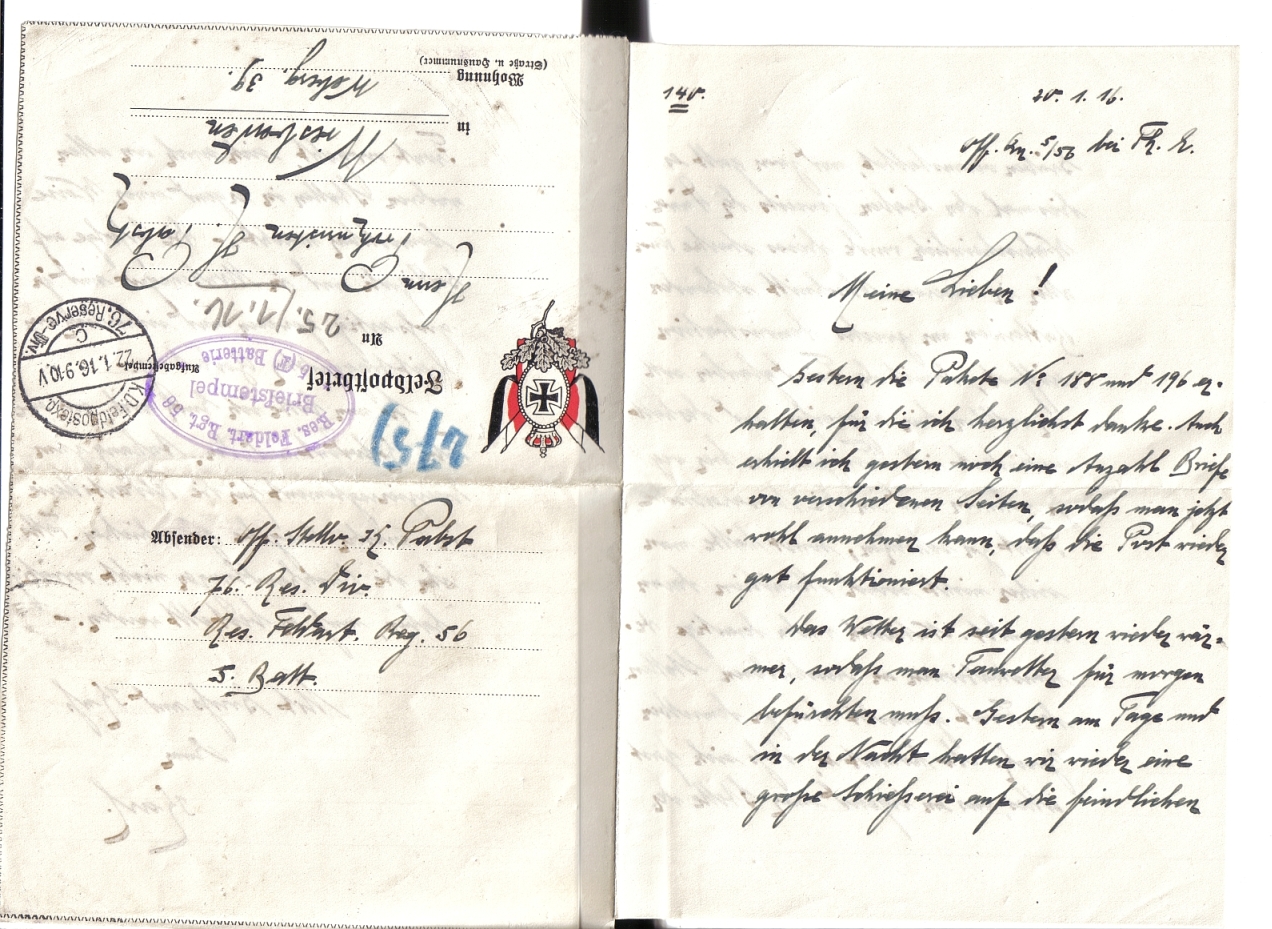 Wohnung
(Straße u. Hausnummer)
39.
in
Wiesbaden
Herrn
25./1.16.
An
Feldpostbrief
Aufgabestempel
K.D. Feldpostexp.
22.1.16. 9-10 V
C
76. Reserve-Div.
Res. Feldart. Rgt. 56
Briefstempel
Batterie
Absender: Off. Stellv. K. Pabst
76. Res. Div.
Res. Feldart. Reg. 56
5. Batt.
140.
20. 1. 16.
Off. 5/56 bei
Meine Lieben!
Gestern die Pakete No 188 und 196 er-
halten, für die ich herzlichst danke. Auch
erhielt ich gestern noch eine Anzahl Briefe
von verschiedenen Seiten, sodaß man jetzt
wohl annehmen kann, daß die Post wieder
gut funktioniert.
Das Wetter ist seit gestern wieder wär-
mer, sodaß man Tauwetter für morgen
befürchten muß. Gestern am Tage und
in der Nacht hatten wir wieder eine
große Schießerei auf die feindlichen